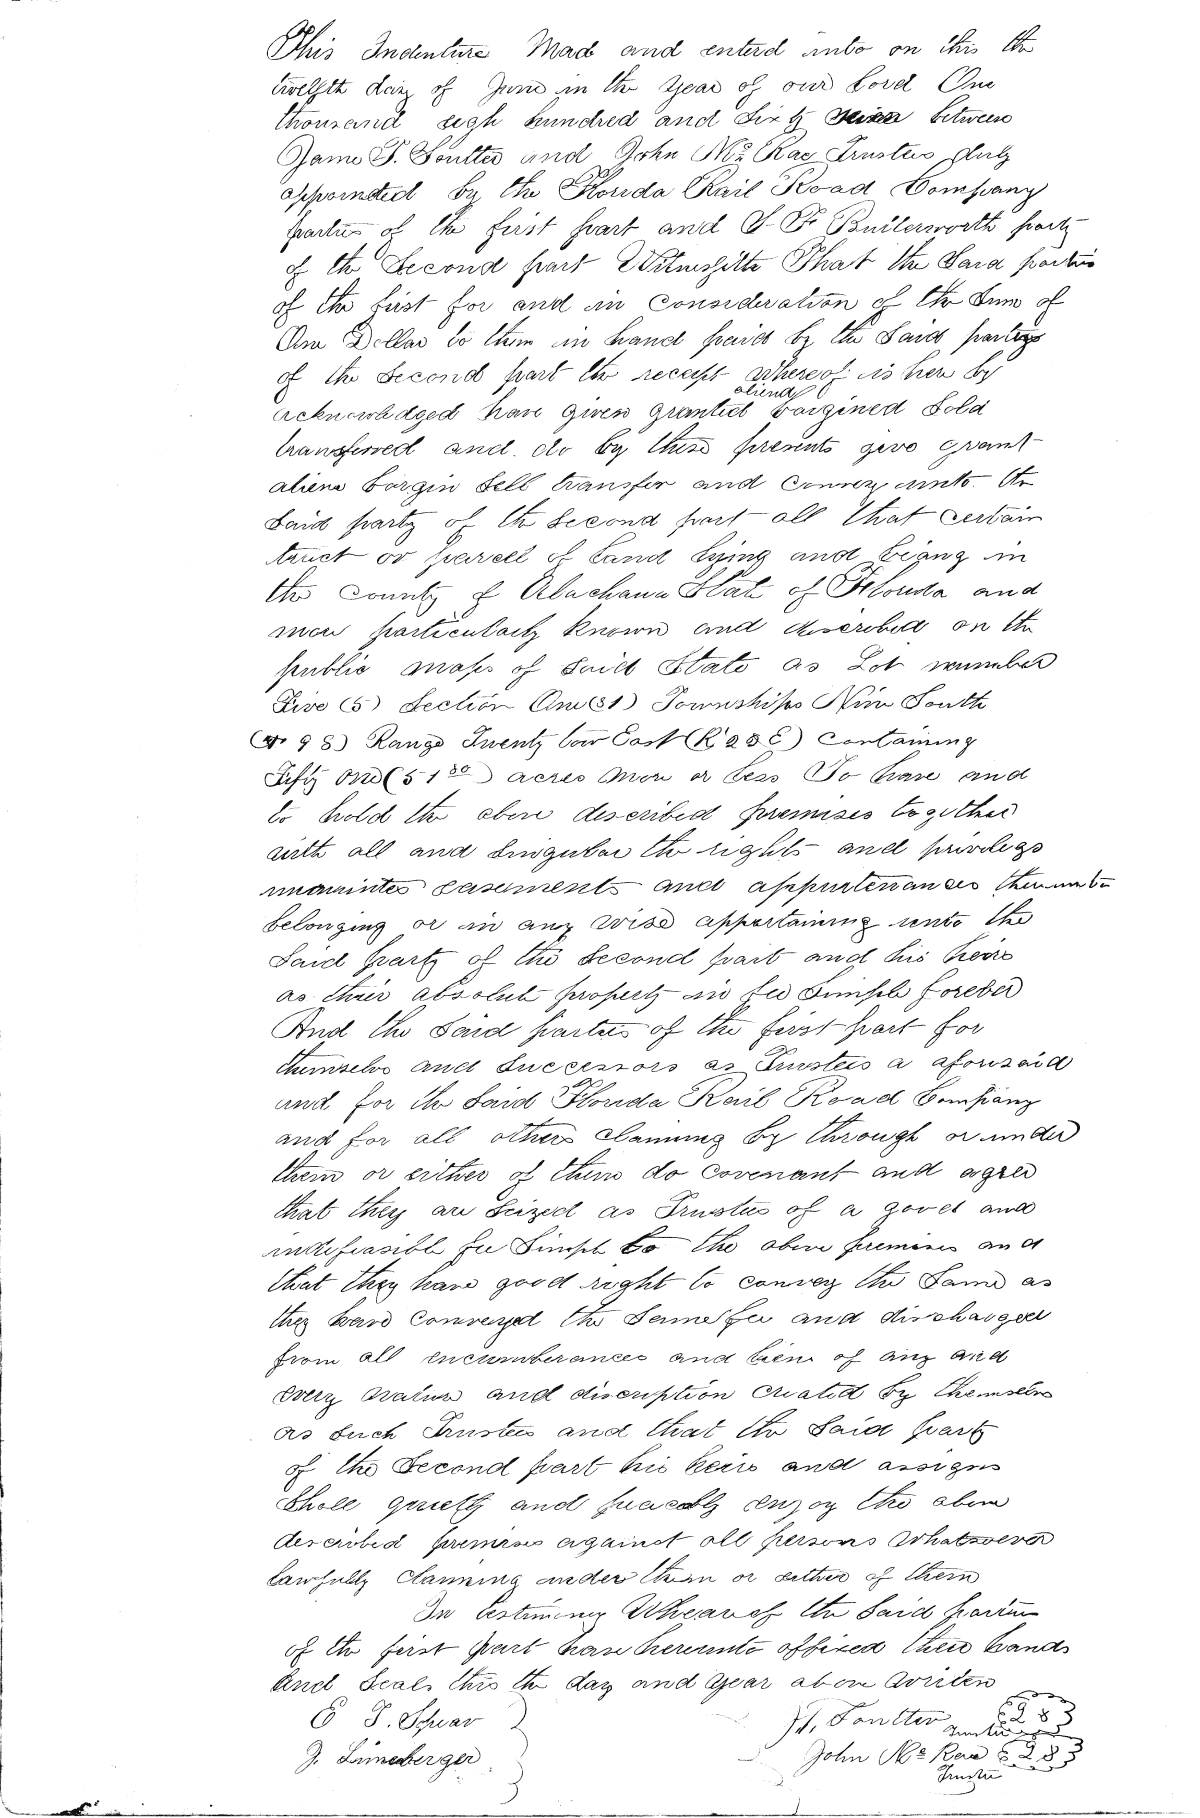 This Indenture Mad and enterd into on this the
twelfth day of June in the Year of our Lord One
thousand eigh hundred and Sixty between
Jame T. Soutter and John Mc Rae Trustees duly
appointed by the Florida Rail Road Company
parties of the first part and S. F. Butterworth party
of the Second part Witnessitte That the Said parties
of the first for and in consideration of the Sum of
One Dollar to them in hand paid by the Said party
of the Second part the receipt whereof is here by
aliend
acknowledged have given granted bargined Sold
transferred and do by these presents give grant
aliene bargin Sell transfer and Convey unto the
Said party of the Second part all that certain
tract or parcell of Land lying and being in
the County of Alachaua State of Florida and
more particularly known and described on the
public maps of Said State as Lot number
Five (5) Section One (S1) Townships Nine South
(T 9 S) Range Twenty four East (R 23 E) Containing
Fifty One (51 30) acres more or less To have and
to hold the above described premises together
with all and Singular the rights and privilegs
easements and appurtenances thereunto
belonging or in any wise appertaining unto the
Said party of the Second part and his heirs
as their absolute property in fee Simple forever
And the Said parties of the first part for
themselvs and Successors as Trustees a aforesaid
and for the Said Florida Rail Road Company
and for all others claiming by through or under
them or either of them do covenant and agree
that they are Seized as Trustees of a good and
indefeasible fee Simple to the above premises and
that they have good right to convey the Same as
they have Conveyed the Same fee and discharged
from all encumberances and liens of any and
every nature and discription created by themselvs
as Such Trustees and that the Said party
of the Second part his heirs and assigns
Shall quietly and peacably enjoy the above
described premises against all persons Whatsoever
lawfully Claiming under them or either of them
In testimony Wheareof the Said parties
of the first part have hereunto affixed their hands
And Seals this the day and year above Writen
E T. J. Soutter
J. Lineberger John Mc Rae
Trustee